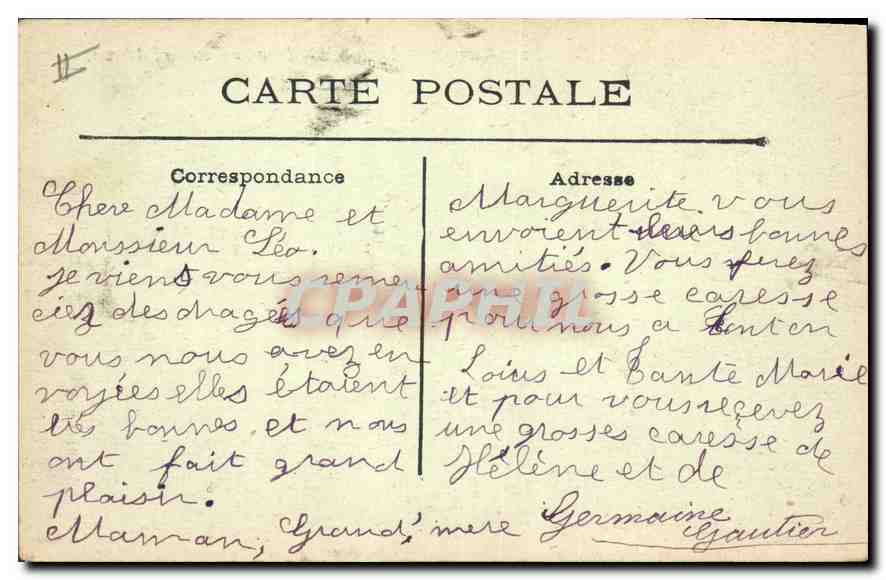 CARTE POSTALE
Correspondance
Chere Madame et
Monssieur Léo.
je viens vous remer
ciez des dragés que
vous nous avez en
voyées elles étaient
trés bonnes et nous
ont fait grand
plaisir.
Maman, Grand'mere
Adresse
Marguerite vous
envoient leurs bonnes
amitiés. Vous ferez
une grosse caresse
pour nous a Tonton
Loius et Tante Marie
et pour vous reçevez
une grosses caresse de
Hélène et de
Germaine
Gautier
CPAPHIL